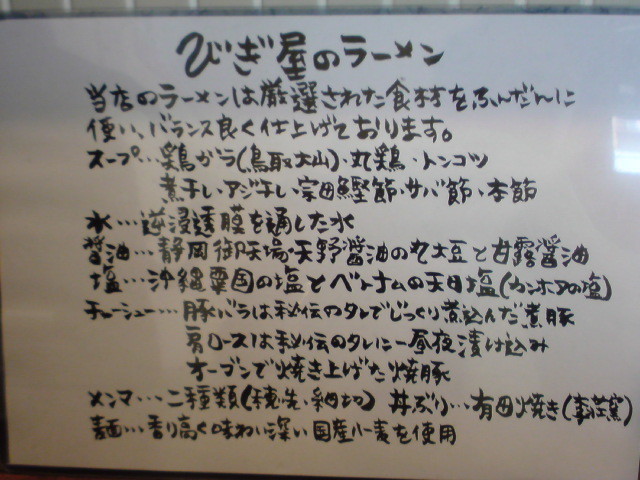 びぎ屋のラーメン
当店のラーメンは厳選された食材をふんだんに
使い、バランス良く仕上げております。
スープ…鶏ガラ(鳥取大山)・丸鶏・トンコツ
煮干し・アジ干し・宗田鰹節・サバ節・本節
水…逆浸透膜を通した水
醤油…静岡御天場・天野醤油の丸大豆と甘露醤油
塩…沖縄粟国の塩とベトナムの天日塩(カンホアの塩)
チャーシュー…豚バラは秘伝のタレでじっくり煮込んだ煮豚
肩ロースは秘伝のタレに一昼夜漬け込み
オーブンで焼き上げた焼豚
メンマ…二種類(穂先・細切) 丼ぶり…有田焼き
麺…香り高く味わい深い国産小麦を使用